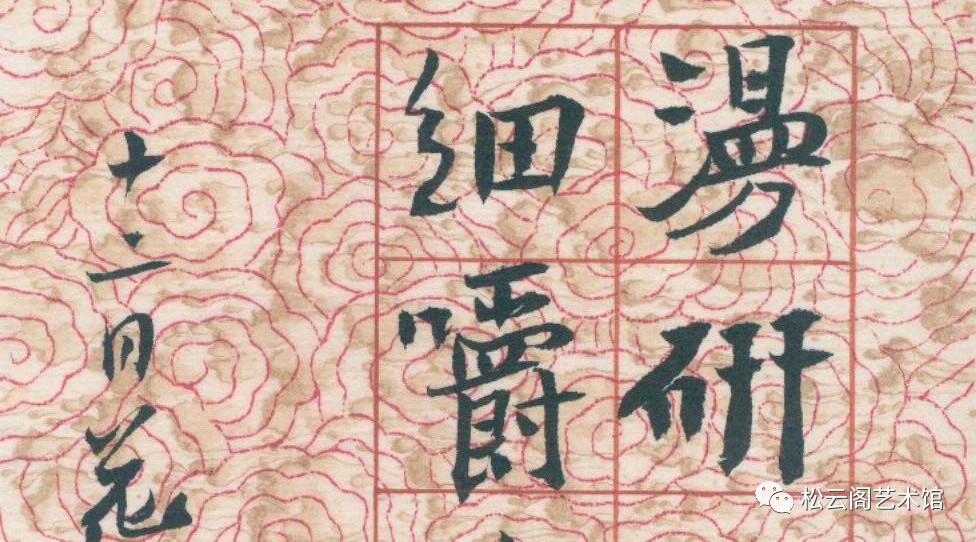 湯研
細嚼
十二月花
松云阁艺术馆